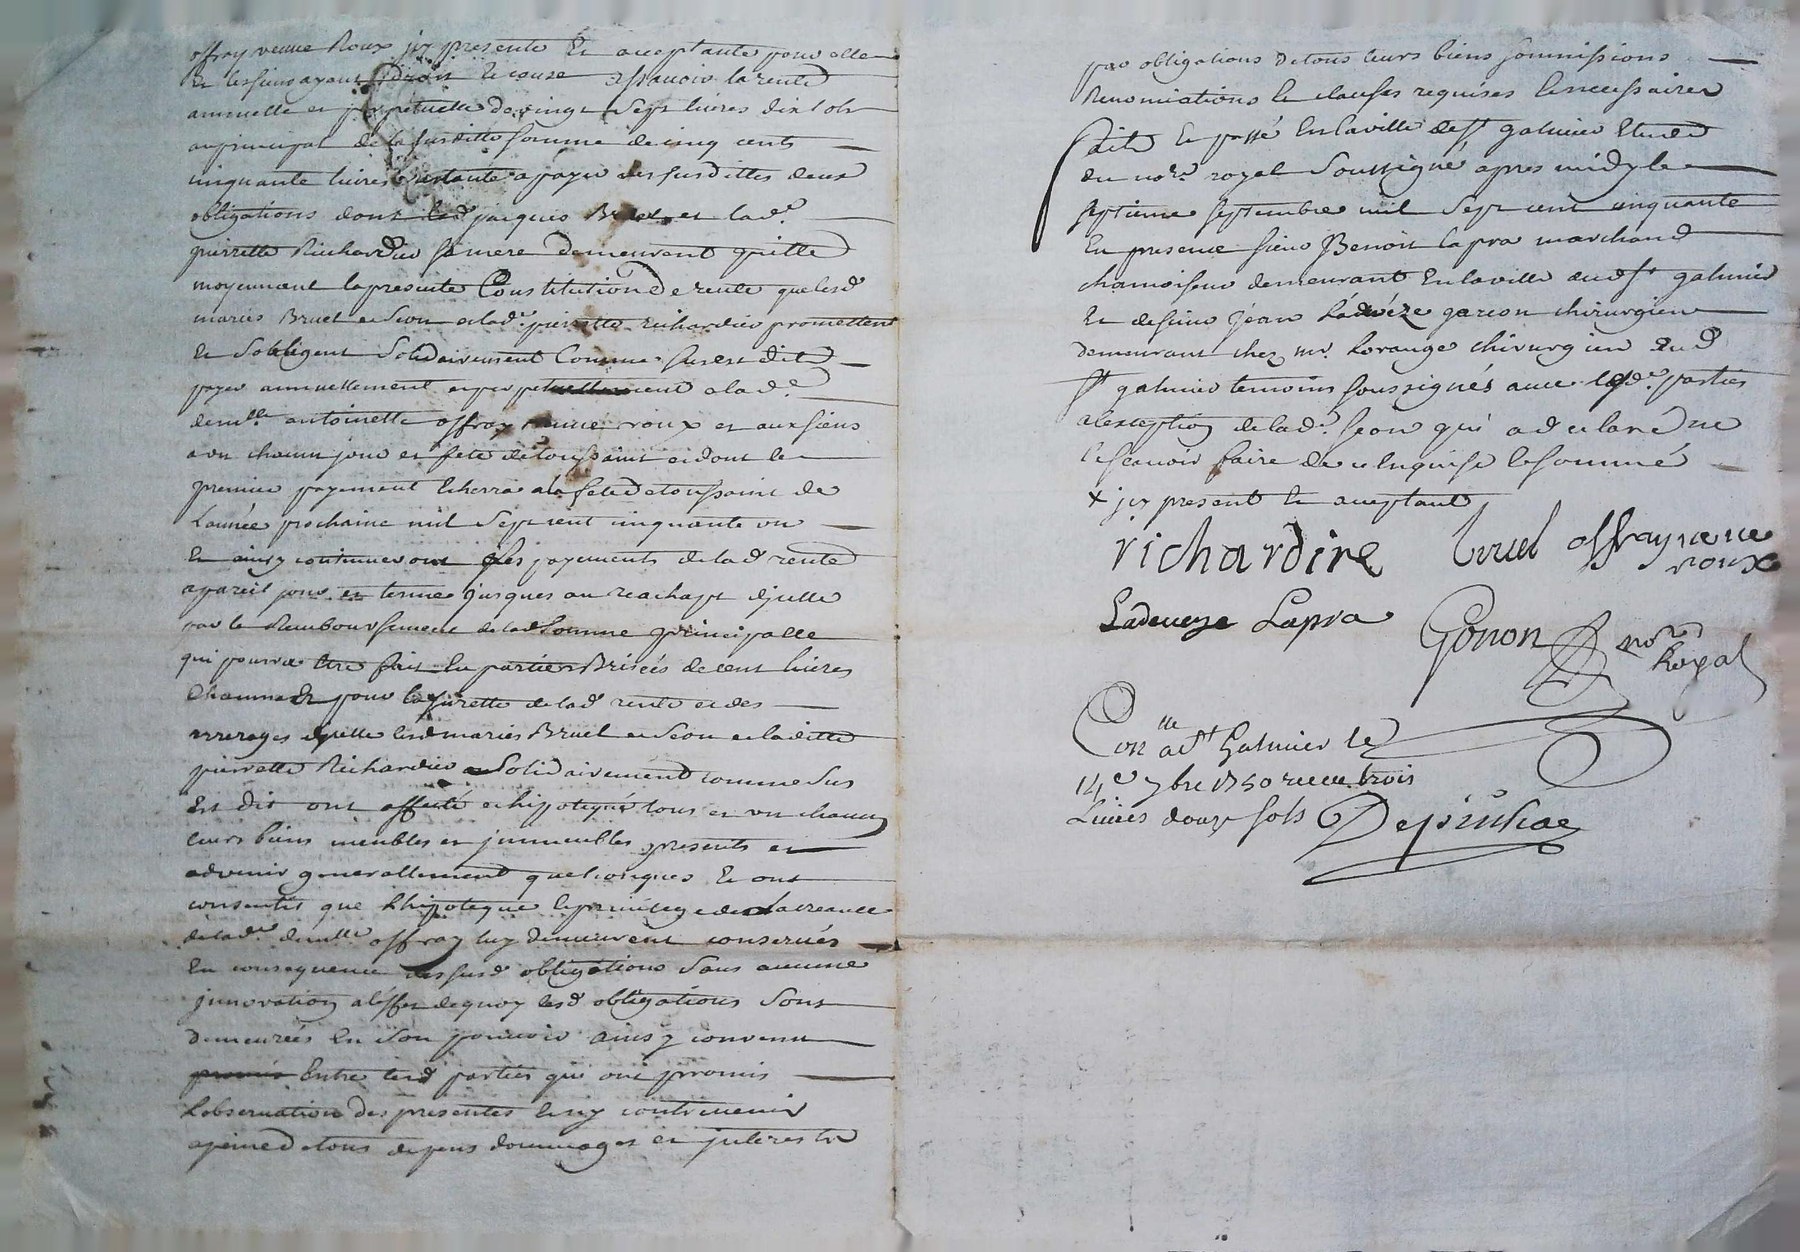 offray veuve Roux jcy presente Et acceptante pour elle
Et les siens ayant droit Et cause assavoir la rente
annuelle et perpetuelle de vingt sept livres dix sols
au principal de la susditte somme de cinq cents
cinquante livres a payer des susdittes deux
obligations dont led. jacques Bruel et la de.
pierrette Richardier sa mere demeurent quitte
moyennant la presente Constitution de rente que lesd
mariés Bruel et Seon et lad.e pierrette richardier promettent
Et Sobligent Solidairement Comme sus est dit
payer annuellement et perpetuellement a lad.e
dem.lle antoinette offray veuve roux et aux siens
a un chacun jour et fete de toussaint et dont le
premier payement Echerra a la fete de toussaint de
Lannée prochaine mil Sept cent cinquante un
Et ainsy continueront les payements de lad rente
a pareil jour et terme jusques au reachapt djcelle
par le Remboursement de lad Somme principalle
qui pourra Etre fait En parties Brisées de cent livres
Chacune Et pour la suretté de lad rente et des
arrerages djcelle lesd mariés Bruel et Seon et laditte
pierrette Richardier Solidairement comme sus
Est dit ont affecté et hipotequé tous et un chacun
leurs biens meubles et jmmeubles presents et
advenir generallement quelconques Et ont
consentis que Lhipoteque Le privilege de la creance
de lad.e dem.lle offray luy demeurent conservés
En consequence des susd obligations Sans aucune
jnnovation a leffet de quoy lesd obligations Sont
demeurées En Son pouvoir ainsy convenu
Entre lesd parties qui ont promis
Lobservation des presentes Et ny contrevenir
a peine de tous depens dommages et jnterests
par obligations de tous leurs biens soumissions
Renonciations Et clauses requises Et necessaires
Fait Et passé En la ville de st galmier Etude
du no.re royal Soussigné apres midy le
septieme septembre mil Sept cent cinquante
En presence sieur Benoit lapra marchand
chamoiseur demeurant En la ville dud st galmier
Et de sieur jean Ladevéze garcon chirurgien
demeurant chez mr. Lorange chirurgien aud
st galmier temoins soussignés avec lesd. parties
a lexception de lad.e seon qui a declaré ne
le scavoir faire de ce Enquise Et sommé
x jcy present Et acceptant
richardire bruel offray veuve
roux
Ladeveze Lapra Gonon no.re
Royal
Con.lle a St Galmier le
14e 7bre 1750 receu trois
Livres douze sols